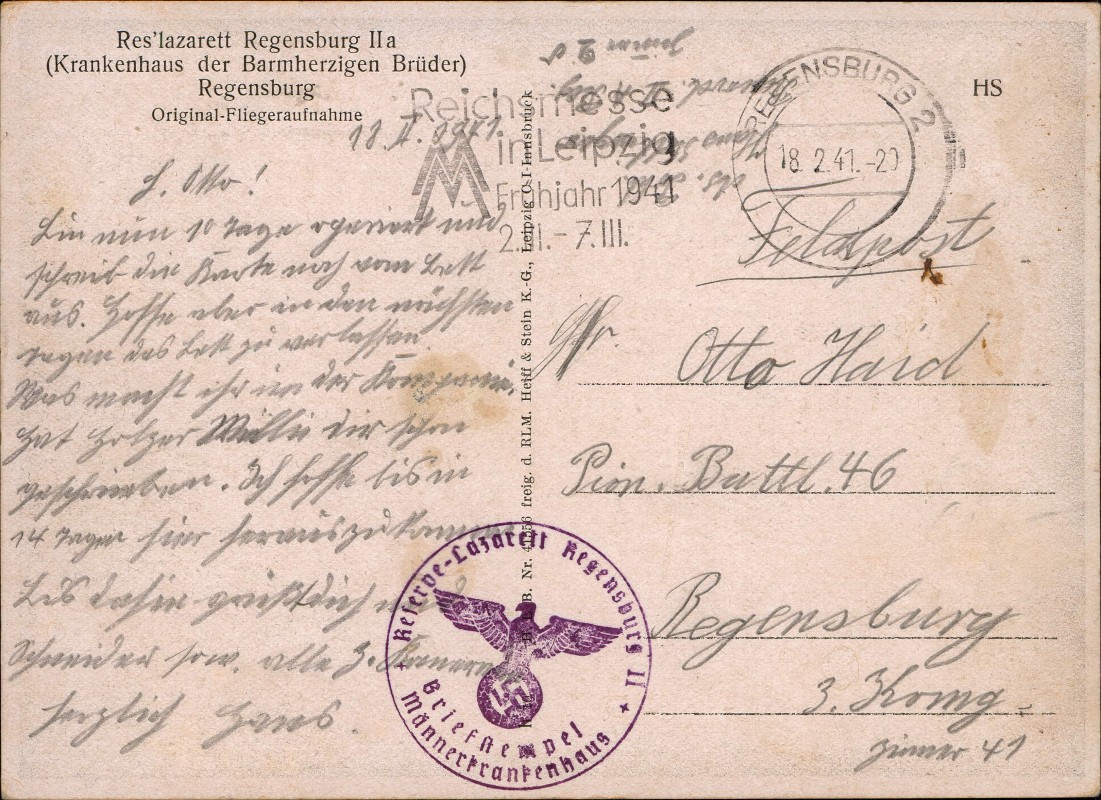 Res'lazarett Regensburg II a
(Krankenhaus der Barmherzigen Brüder)
Regensburg
Original-Fliegeraufnahme
HS
Reichsmesse
in Leipzig
Frühjahr 1941
2.III.-7.III.
REGENSBURG 2
18.2.41.-20
18.II.1941.
L. Otto!
Bin nun 10 Tage operiert und
schreib die Karte noch vom Bett
aus. Hoffe aber in den nächsten
Tagen das Bett zu verlassen.
Was macht ihr in der Kompanie.
Hat Willi dir schon
geschrieben. Ich hoffe bis in
14 Tagen hier herauszukommen
Bis dahin grüßt dich und
Schneider sow. alle
herzlich Hans.
Feldpost
Otto Haid
Pion. Battl. 46
Regensburg
3. Komp.
Zimmer 41
freig. d. RLM. Heiff & Stein K.-G., Leipzig C 1-Innsbruck
Reserve-Lazarett Regensburg II
Briefstempel
Männerkrankenhaus